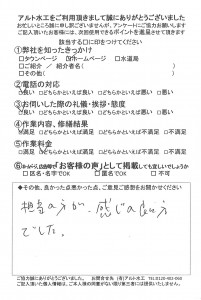 アルト水工をご利用頂きまして誠にありがとうございました
お忙しいところ誠に申し訳ございませんが、アンケートにご協力お願いします
ご記入頂いたお客様には、次回使用できるポイントを進呈させて頂きます
該当する□に印をつけてください
①弊社を知ったきっかけ
□タウンページ ☑ホームページ □水道局
□ご紹介 / 紹介者名( )
□その他( )
②電話の対応
☑良い □どちらかといえば良い □どちらかといえば悪い □悪い
③お伺いした際の礼儀・挨拶・態度
☑良い □どちらかといえば良い □どちらかといえば悪い □悪い
④作業内容、修繕結果
☑満足 □どちらかといえば満足 □どちらかといえば不満足 □不満足
⑤作業料金
□満足 ☑どちらかといえば満足 □どちらかといえば不満足 □不満足
⑥ホームページ、広告等で「お客様の声」として掲載しても宜しいでしょうか
□医名・名字でOK ☑匿名でOK □不可
◆その他、良かった点悪かった点、ご意見ご感想をお聞かせ下さい
担当の方が、感じの良い方
でした。
ご協力誠にありがとうございました。 お問合せ先 (有)アルト水工 TEL:0120-402-660
ご記入頂いた個人情報は、ご本人様の同意がない限り第三者には提供いたしません。